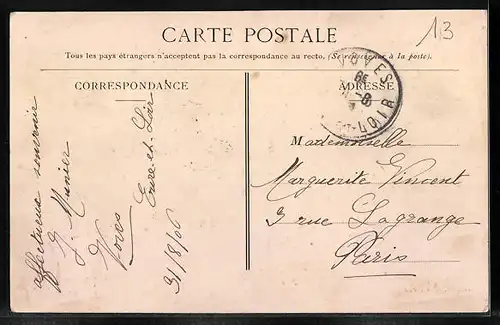 13
CARTE POSTALE
Tous les pays étrangers n'acceptent pas la correspondance au recto. (Se renseigner à la poste).
CORRESPONDANCE
affectueux souvenir
J. Munier
Voves
Eure-et-Loir
31/8/06
ADRESSE
VOVES
LOIR
Mademoiselle
Marguerite Vincent
3 rue Lagrange
Paris